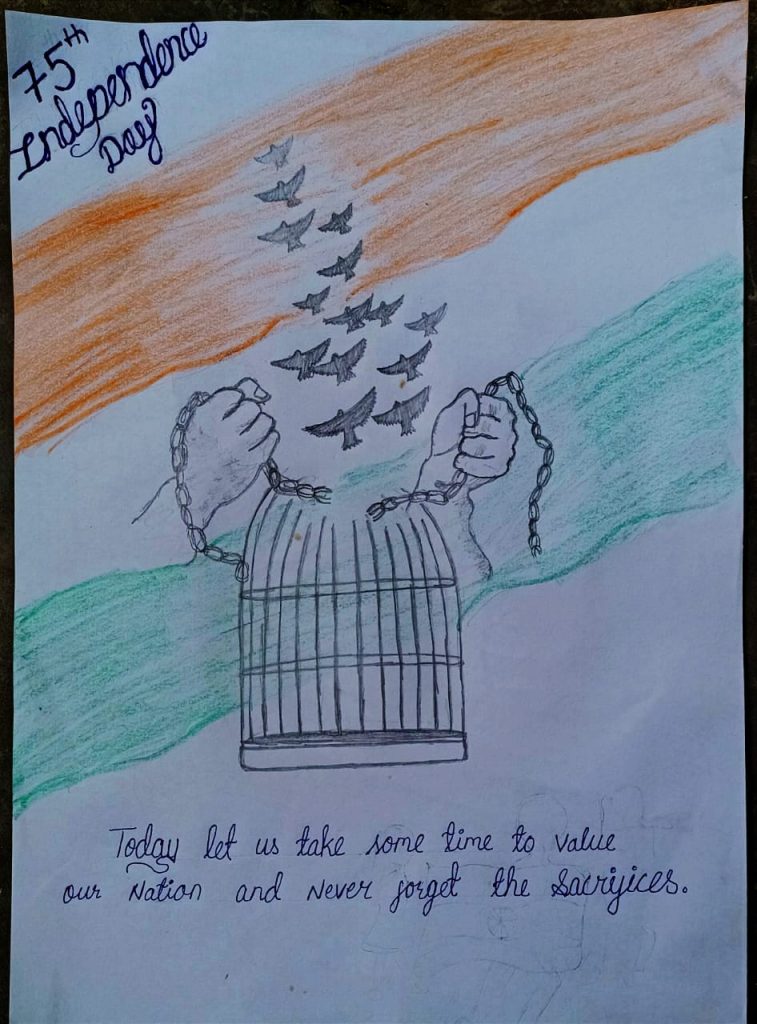 75th
Independence
Day
Today let us take some time to value
our Nation and Never forget the Sacrifices.